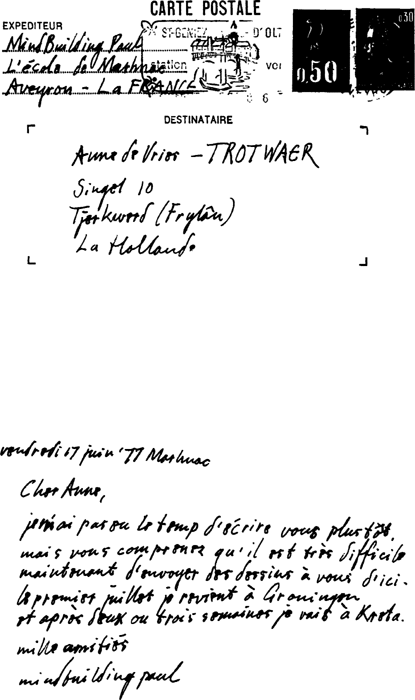 CARTE POSTALE
EXPEDITEUR
MindBuilding Paul
L'école de Mashnac
Aveyron - La FRANCE
ST-GENIEZ D'OLT
station
0,50
0,30
DESTINATAIRE
Anne de Vries - TROTWAER
Singel 10
Tjerkwerd (Frylân)
La Hollande
vendredi 17 juin '77 Mashnac
Cher Anne,
je n'ai pas eu le temp d'écrire vous plustôt,
mais vous comprenez qu'il est très difficile
maintenant d'envoyer des dessins à vous d'ici.
le premier juillet je revient à Groningen
et après deux ou trois semaines je vais à Kreta.
mille amitiés
mindbuilding paul